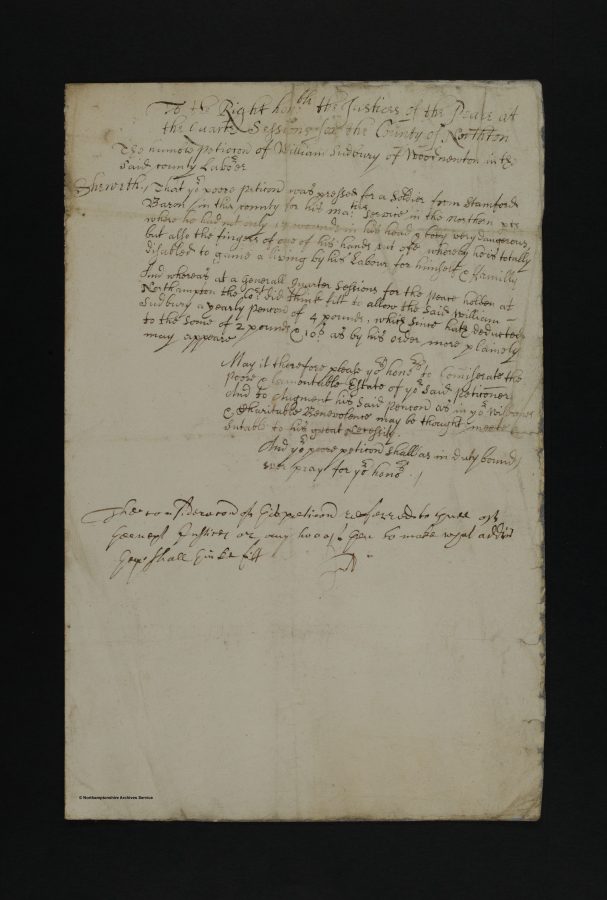 To the Right hon:ble the Justices of the Peace at
the Quarter Sessions for the County of Northton
The humble peticion of William Sudbury of Woodnewton in the
said County Laborer
Sheweth / That yor poore peticonr was pressed for a Soldier from Stamford
Baron (in this county for his maties Service in the Northern pts
where he had not only 17 wounds in his head & body very dangerous,
but allso the fingers of one of his hands cut off whereby he is totally
disabled to gaine a living by his Labour for himself & Familly
And whereas at a Generall Quarter Sessions for the Peace holden at
Northampton the Cort did think fitt to allow the said William
Sudbury a yearly Pencon of 4 pounds, which since hath deducted
to the some of 2 pounds & 10s as by his order more plainely
may appeare
May it therefore please yor honors to Comiserate the
poore & lamentable Estate of yor said Petitioner
And to Augment his said Pencon as in yor
& Charitable Benevolence may be thought meete
sutable to his great Necessity.
And yor poore peticonr shall as in duty bound
ever pray for yor honors /
The consideracon of this peticion referred to three of
Justices or any two of them to make what
they shall thinke fitt
© Northamptonshire Archives Service